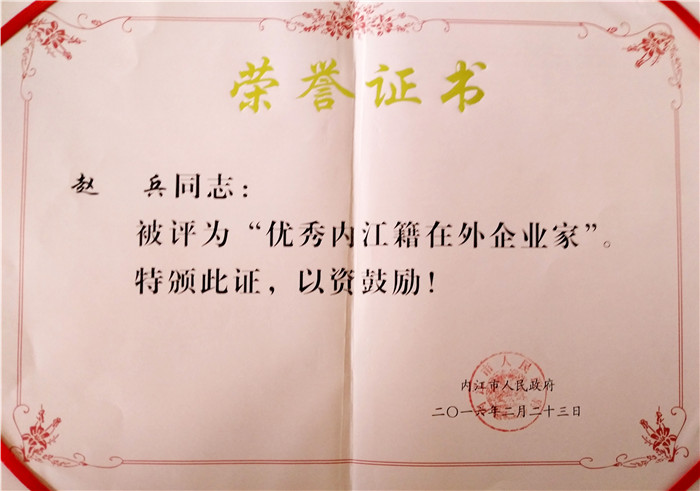 荣誉证书
赵 兵同志：
被评为“优秀内江籍在外企业家”。
特颁此证，以资鼓励！
内江市人民政府
二〇一六年二月二十三日